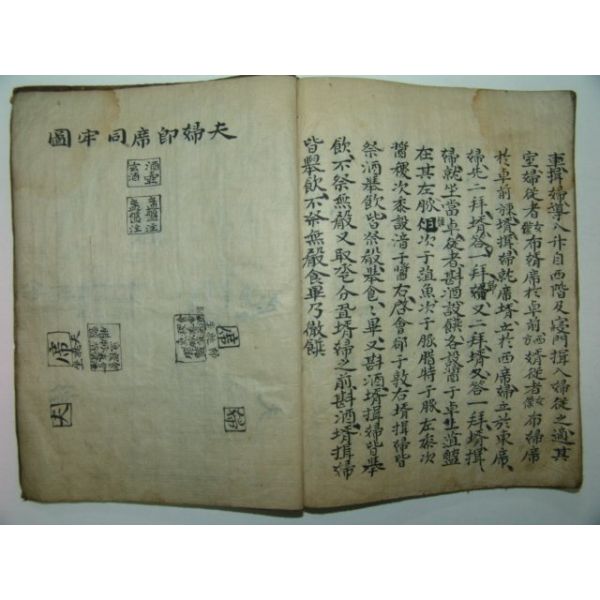 車揖婦導入升自西階及寢門揖入婦從之適其
室婦從者女僕布婿席於卓前西婿從者女僕布婦席
於卓前東婿揖婦就席婿立於西席婦立於東席
婦先二拜婿答一拜婦又二拜婿又答一拜婿揖
婦就坐當卓從者斟酒設饌各設醬于卓上葅盤
在其左豚俎次于葅魚次于豚腊特于豚左黍次
醬稷次黍設湆于醬右啓會郤于敦右婿揖婦皆
祭酒擧飮皆祭殽擧食食畢又斟酒婿揖婦皆擧
飮不祭無殽又取巹分置婿婦之前斟酒婿揖婦
皆擧飮不祭無殽食畢乃徹饌
夫婦即席同牢圖
酒壺
玄酒
盞盤注
盞盤注
席
夫